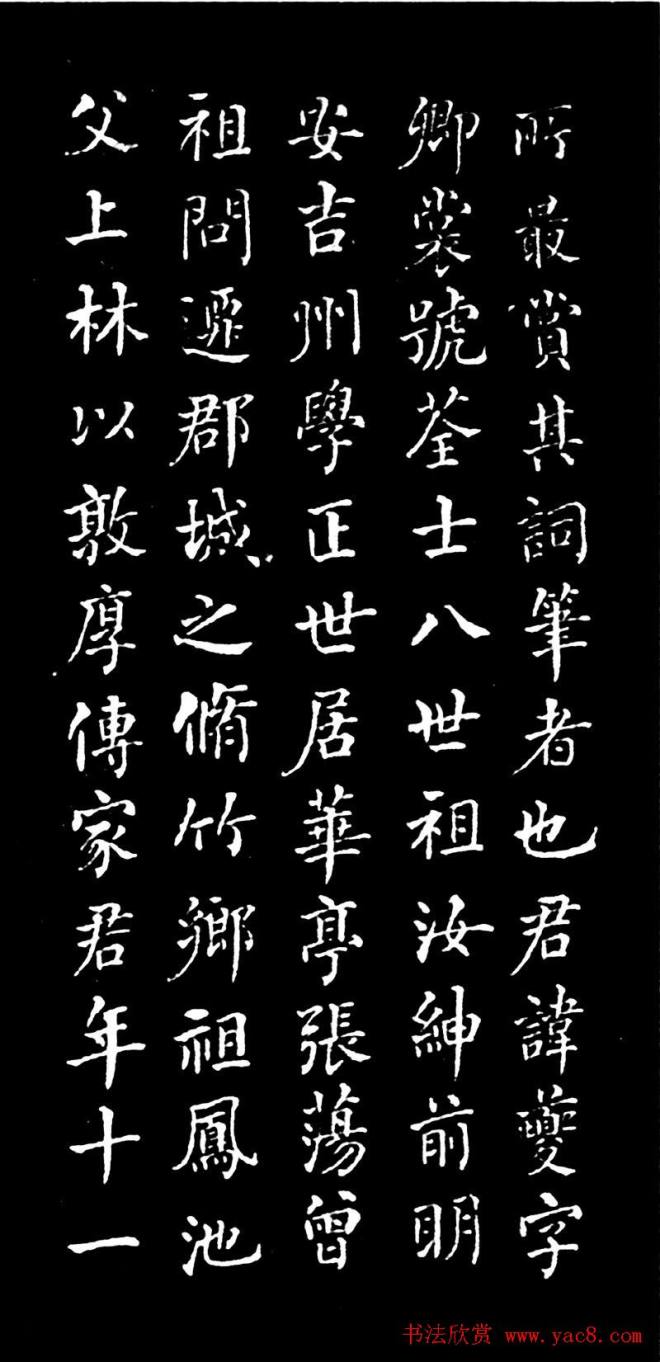 所最賞其詞筆者也君諱夔字
卿裳號荃士八世祖汝紳前明
安吉州學正世居華亭張蕩曾
祖問遲郡城之脩竹鄉祖鳳池
父上林以敦厚傳家君年十一
书法欣赏 www.yac8.com